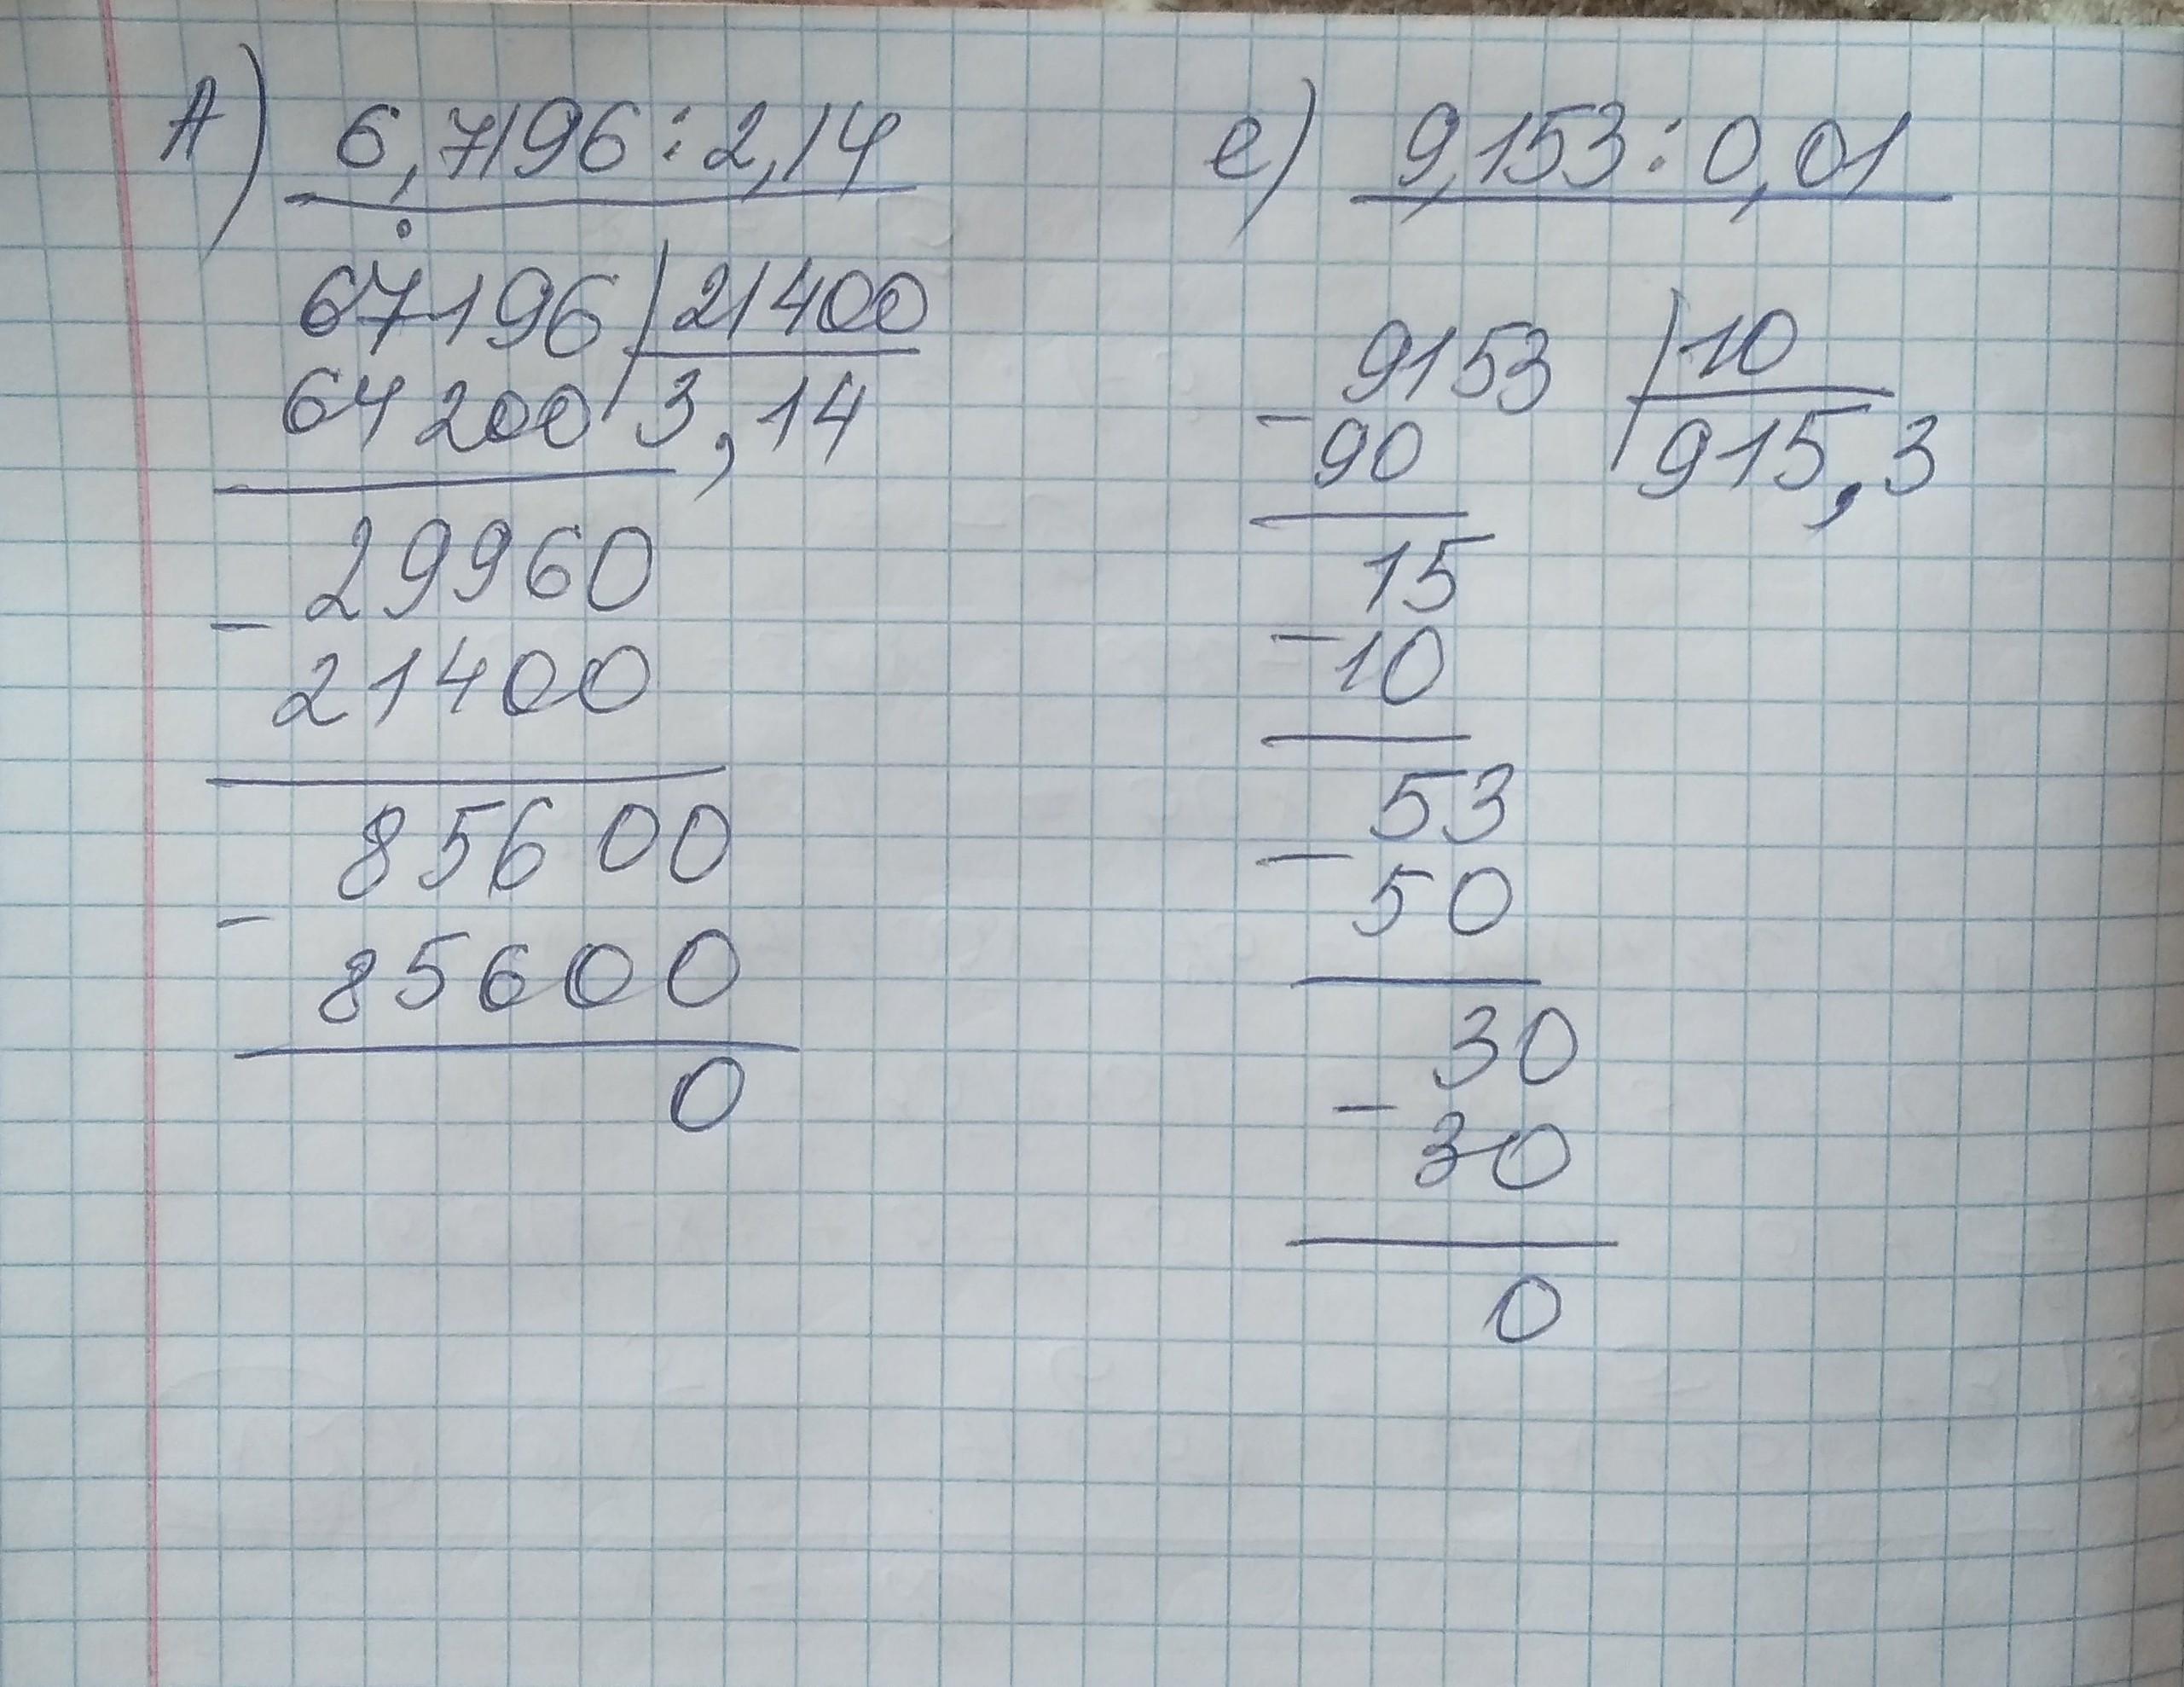 А) 6,7196 : 2,14
67196 | 21400
64200 | 3,14
29960
- 21400
85600
- 85600
0
е) 9,153 : 0,01
9153 | 10
- 90 | 915,3
15
- 10
53
- 50
30
- 30
0